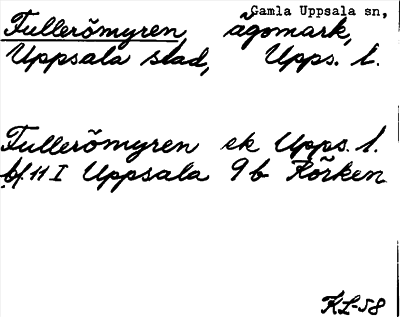 Gamla Uppsala sn,
Fullerömyren, ägomark,
Uppsala stad, Upps. l.
Fullerömyren ek Upps. l.
bl. 11 I Uppsala 9b Rörken
KL-58